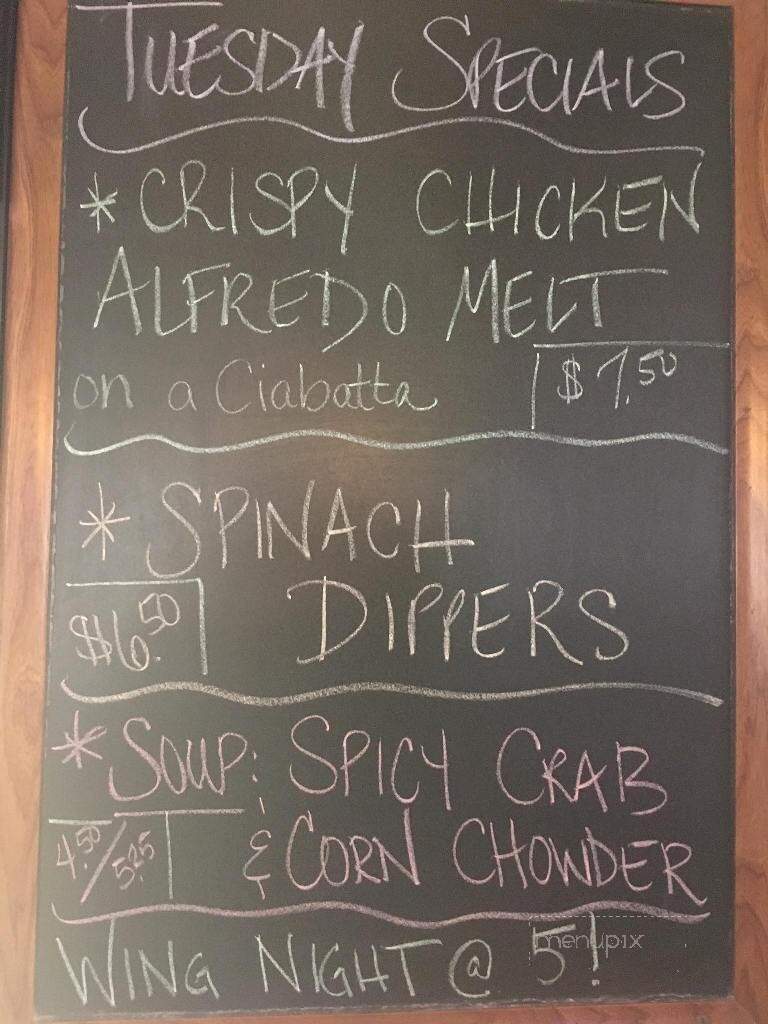 TUESDAY SPECIALS
* CRISPY CHICKEN
ALFREDO MELT
on a Ciabatta $7.50
* SPINACH
$6.50 DIPPERS
* SOUP: SPICY CRAB
4.50/5.25 & CORN CHOWDER
WING NIGHT @ 5!
menupix